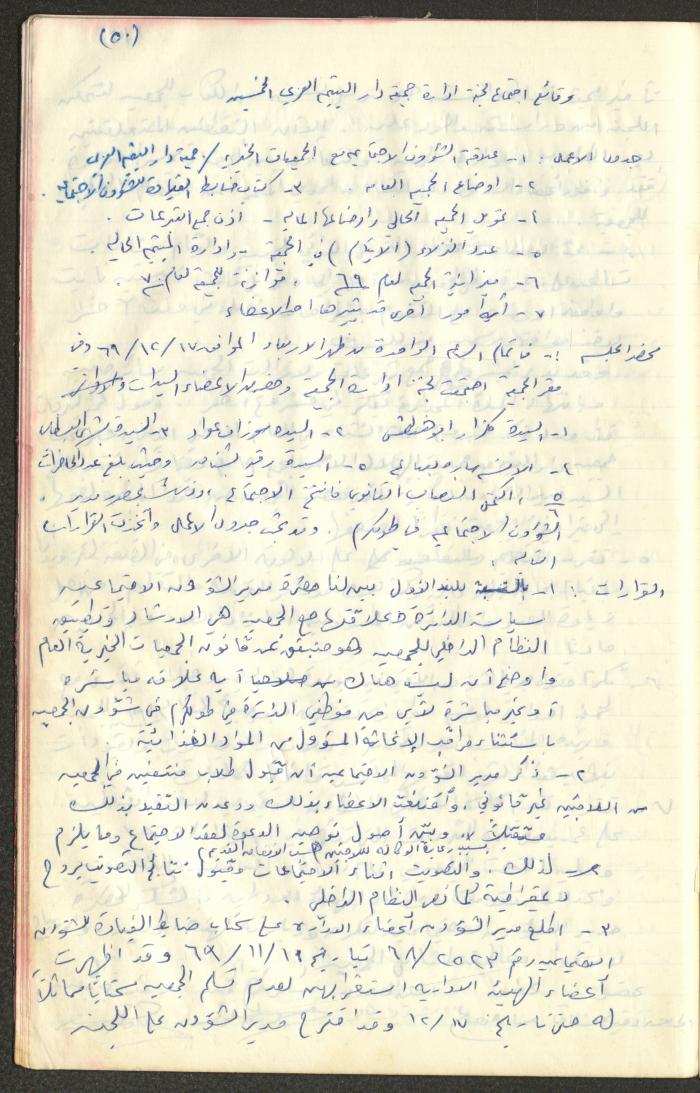 (٥٠)
وقائع اجتماع لجنة ادارة جمعية دار اليتيم العربي الخمسين
جدول الاعمال : ١- علاقة الشؤون الاجتماعيه مع الجمعيات الخيرية / جمعية دار اليتيم العربي
٢- اوضاع الجمعيه العامه . ٣- كتاب ضابط القيادة للشؤون الاجتماعيه .
٤- تمويل الجمعيه الحالي واوضاعها الماليه - اذن جمع التبرعات .
٥- عدد النزلاء (الايتام) في الجمعية - وادارة الميتم الحاليه .
٦- ميزانية الجمعيه لعام ٦٩ ، موازنة الجمعية لعام ٧٠ .
٧- أية امور أخرى قد يثيرها احد الاعضاء
محضر الجلسه :- في تمام الساعه الواحدة من ظهر الاربعاء الموافق ١٧/١٢/٦٩ وفي
مقر الجمعية اجتمعت لجنة ادارة الجمعية وحضر من الاعضاء السيدات
١- السيدة گلزار ابو هنطش ٢- السيده سوزان عواد ٣- السيده
٤- الانسه ساره ٥- السيدة رقيه وحيث بلغ عدد الحاضرات
٥ ، اكتمل النصاب القانوني فافتتح الاجتماع ، بحضور مدير
الشؤون الاجتماعيه في طولكرم . وتد جدول الاعمال واتخذت القرارات
التاليه :
القرارات : ١- بالنسبة للبند الاول بين لنا حضرة مدير الشؤون الاجتماعيه
سياسة الدائرة علاقتها مع الجمعيه هي الارشاد وتطبيق
النظام الداخلي للجمعيه وهو منبثق عن قانون الجمعيات الخيرية العام
واوضح أن ليست هناك أية علاقه مباشره
أو غير مباشرة لأي من موظفي الدائرة في طولكرم في شؤون الجمعيه
باستثناء مراقب الإغاثة المسؤول عن المواد الغذائية .
٢- ذكر مدير الشؤون الاجتماعيه أن قبول طلاب منتفعين في الجمعيه
من اللاجئين غير قانوني ، واقتنعت الاعضاء بذلك ووعدن التقيد بذلك
مستقبلاً . وبيّن أصول توجيه الدعوة لعقد الاجتماع وما يلزم
بسبب رعاية الوكاله للاجئين
لذلك . والتصويت اثناء الاجتماعات وقبول نتائج التصويت بروح
ديمقراطية كما نص النظام الداخلي .
٣- اطلع مدير الشؤون أعضاء الادارة على كتاب ضابط القيادة للشؤون
الاجتماعيه رقم ٦٨/٢٥٢٣ تاريخ ١٩/١١/٦٩ وقد اظهرت
أعضاء الهيئة الاداريه استغرابهن لعدم تسلم الجمعيه كتابا مماثلاً
له حتى تاريخ ١٧/١٢ وقد اقترح مدير الشؤون على اللجنة